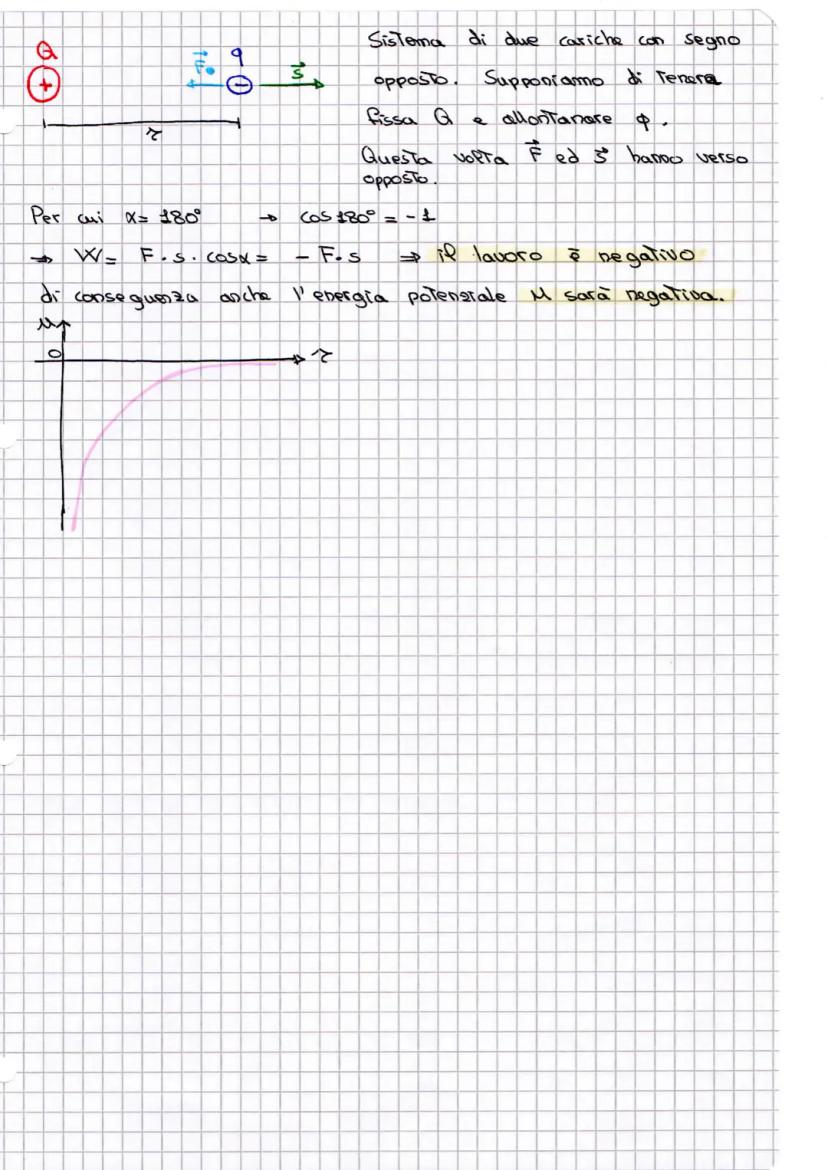 Q
+
F₀
q
−
s
r
Sistema di due cariche con segno
opposto. Supponiamo di tenere
fissa Q e allontanare q.
Questa volta F ed s hanno verso
opposto.
Per cui α = 180° → cos 180° = -1
⇒ W = F·s·cosα = - F·s ⇒ il lavoro è negativo
di conseguenza anche l'energia potenziale U sarà negativa.
U
0
r